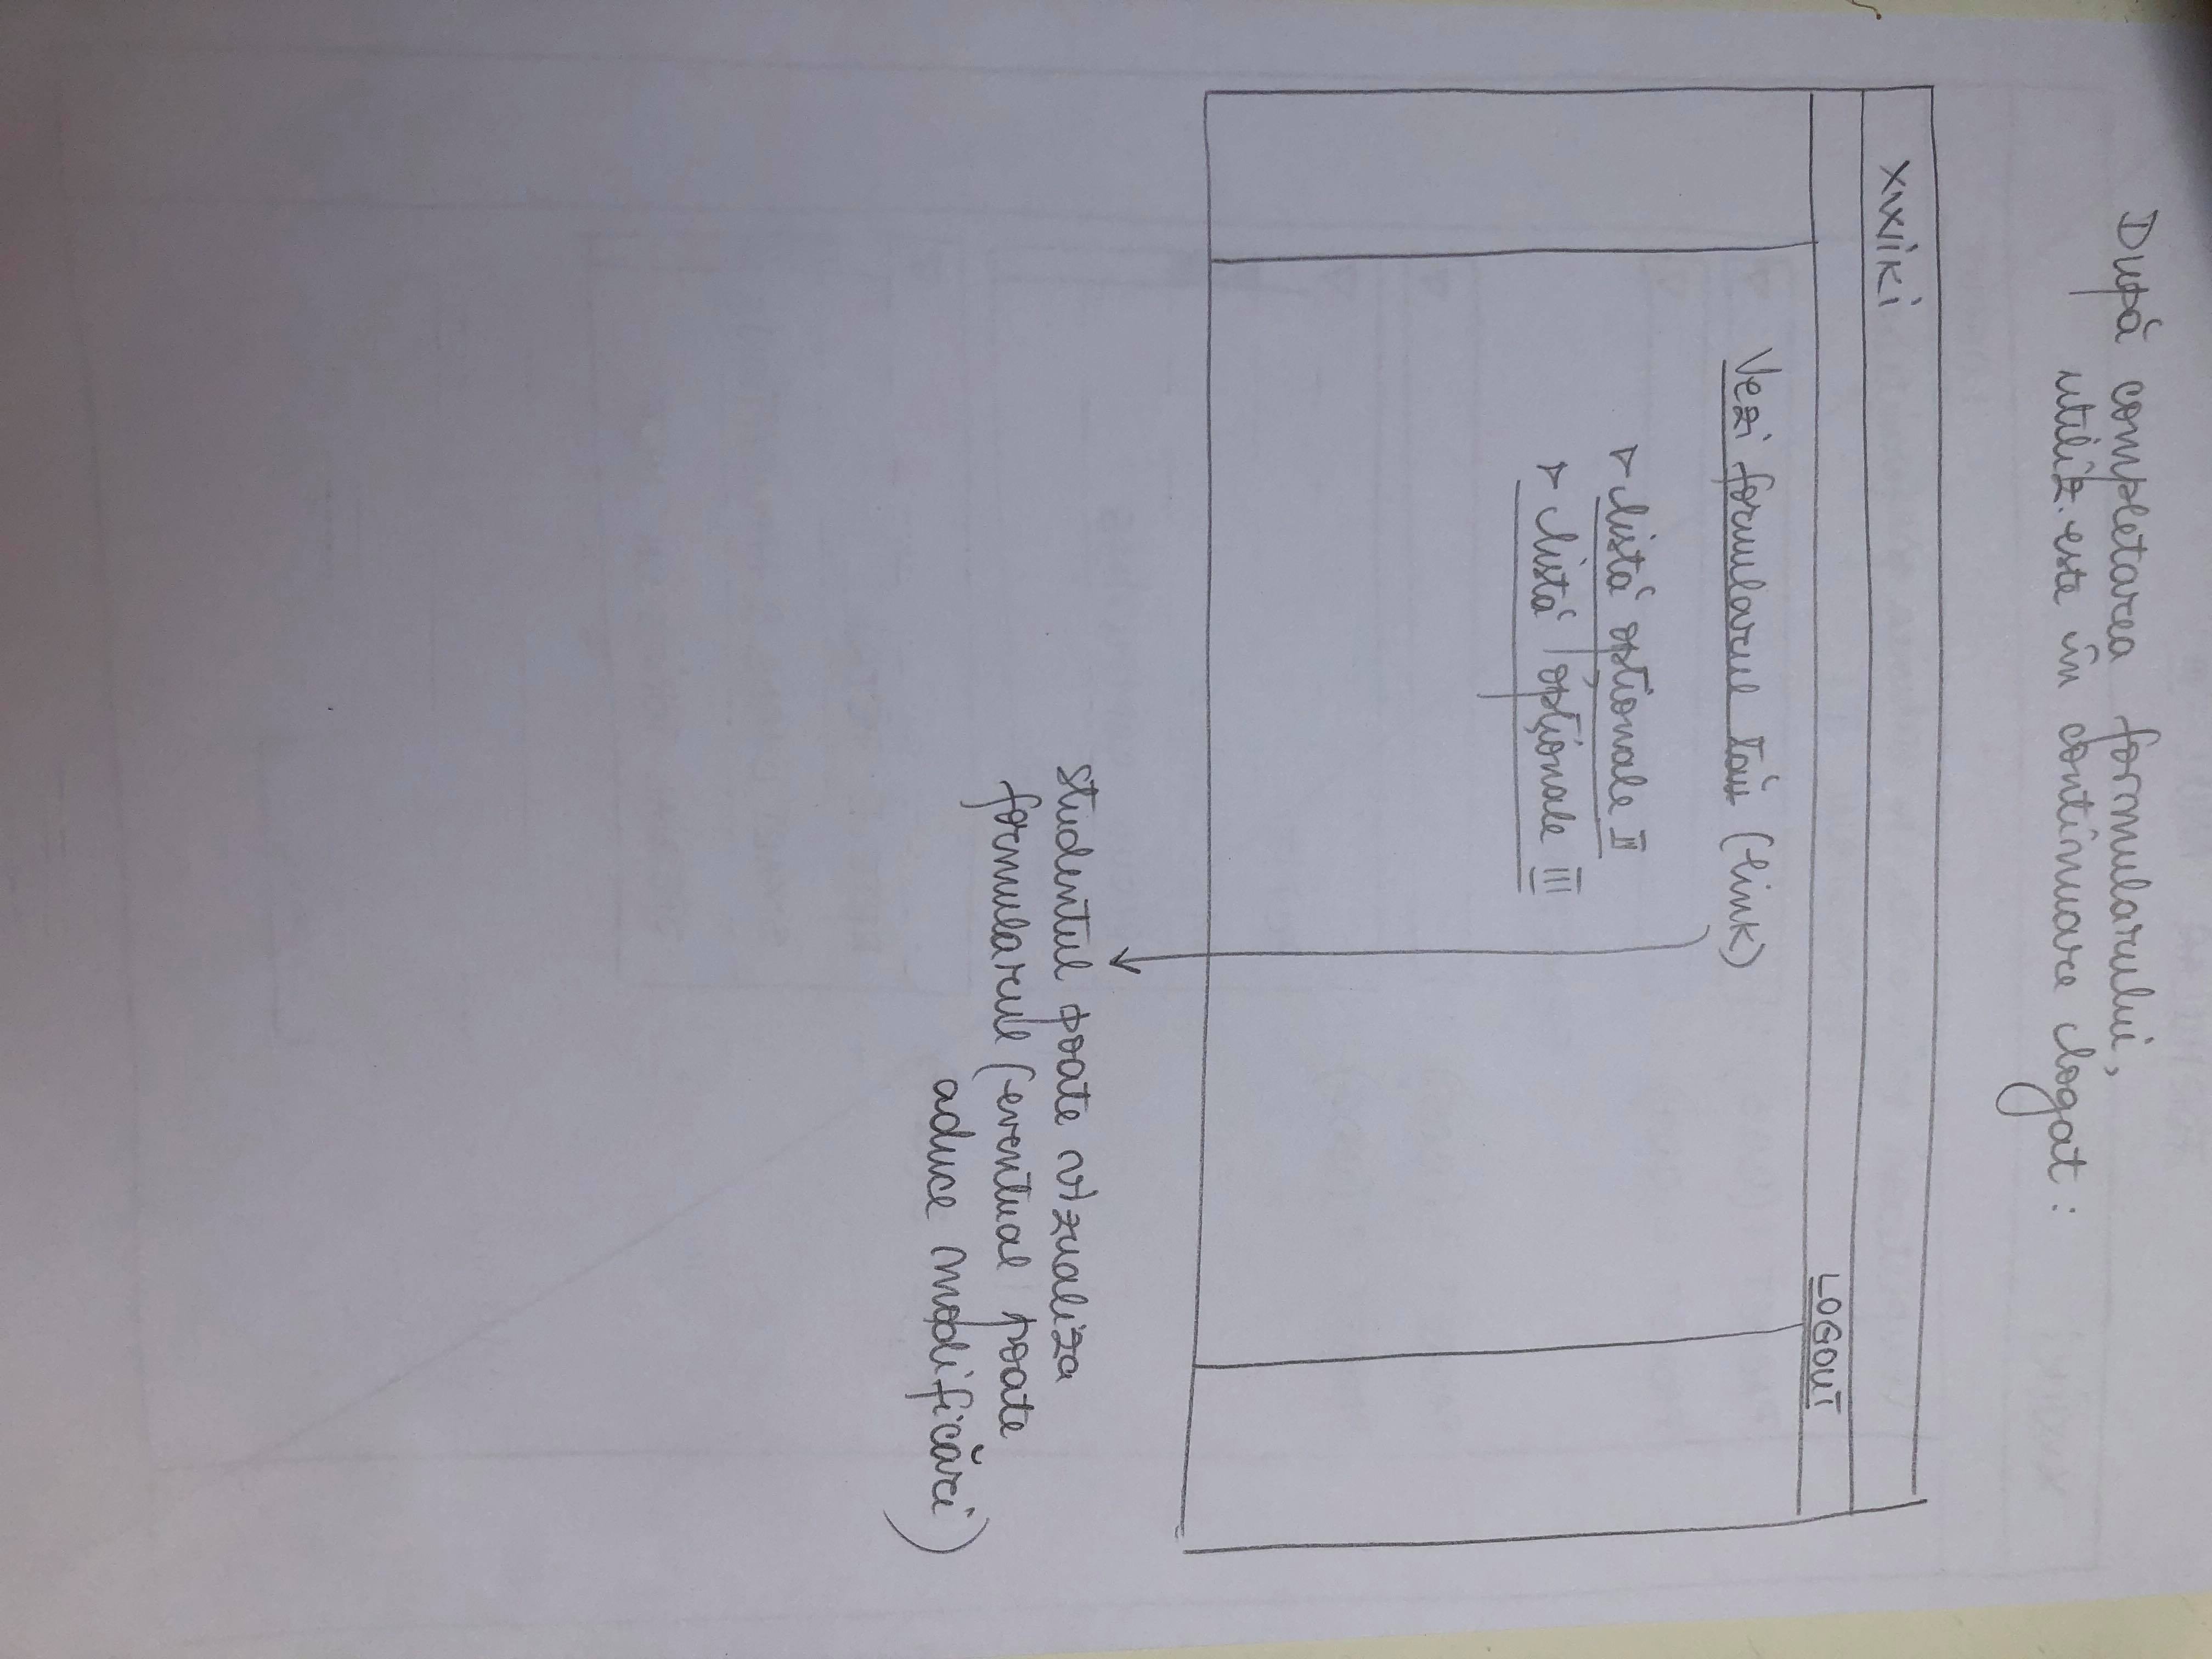 După completarea formularului,
utiliz. este în continuare logat:
XWiki
LOGOUT
Vezi formularul tău (link)
▽ listă opționale II
▽ listă opționale III
studentul poate vizualiza
formularul (eventual poate
aduce modificări)